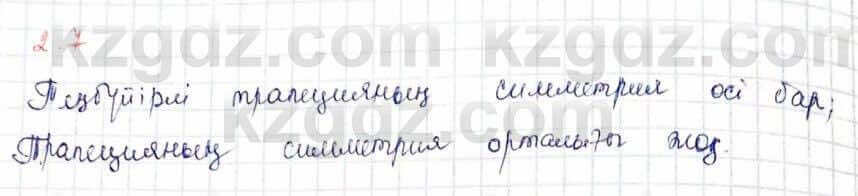 2.7
Теңбүйірлі трапецияның симметрия осі бар;
Трапецияның симметрия орталығы жоқ.
kzgdz.com kzgdz.com
kzgdz.com